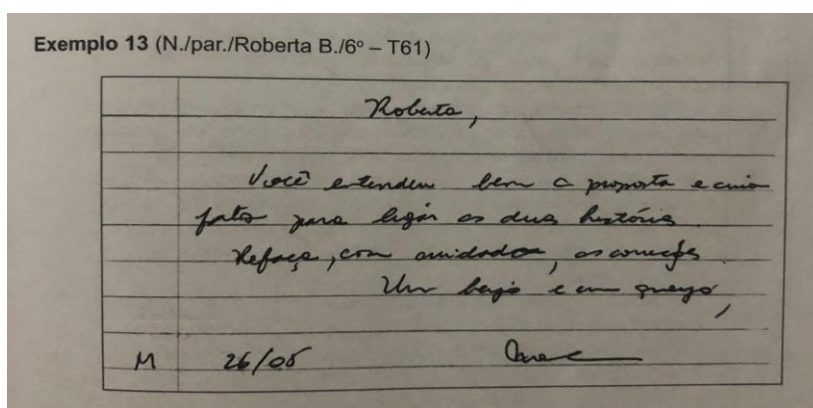 Exemplo 13 (N./par./Roberta B./6º – T61)
Roberta,
Você entendeu bem a proposta e criou
fatos para ligar as duas história.
Refaça, com cuidado, as correções.
Um beijo e um queijo,
M 26/05